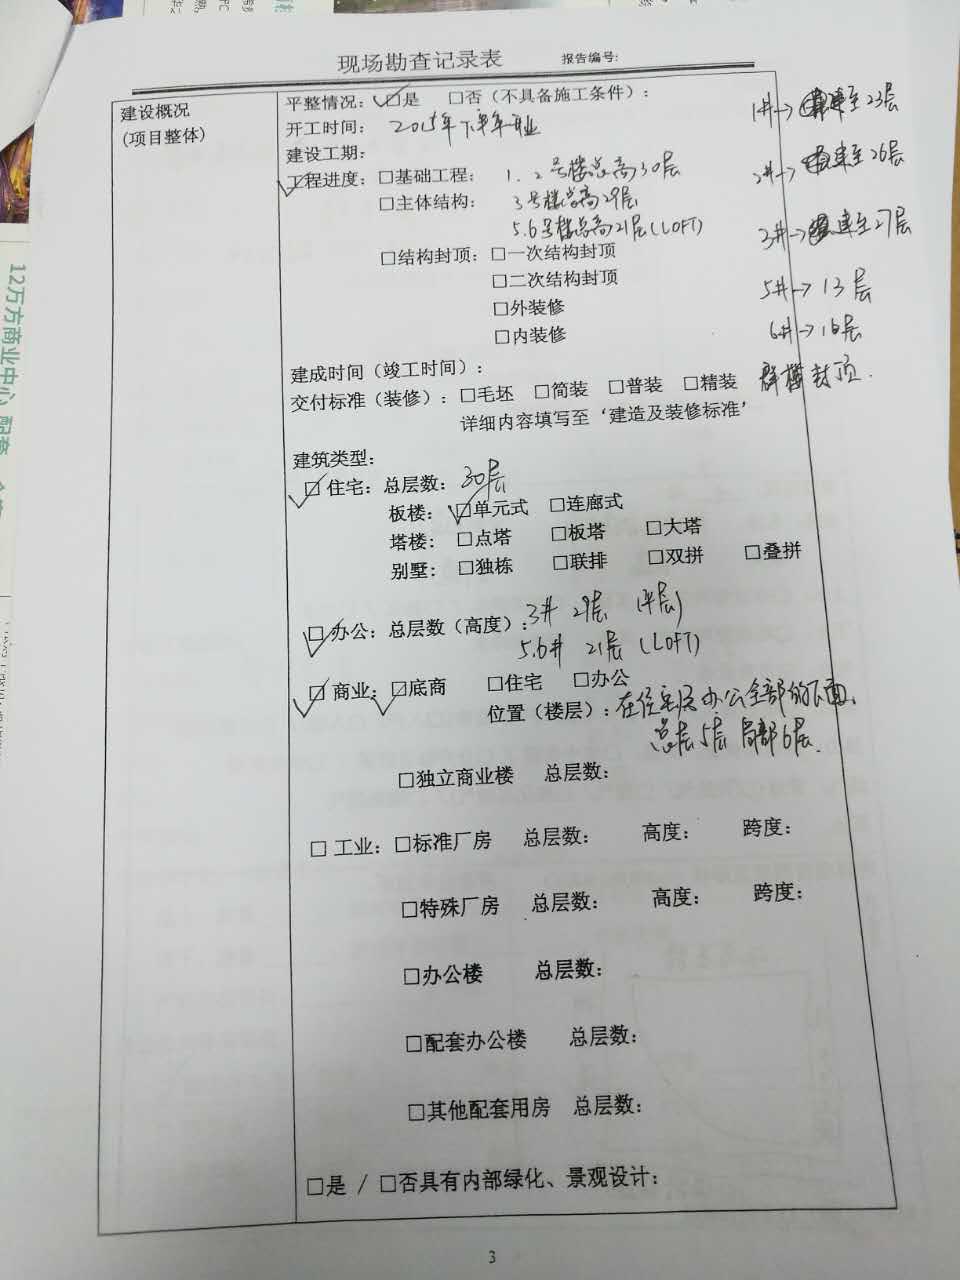 现场勘查记录表 报告编号:
建设概况
(项目整体)
平整情况: ☑是 □否(不具备施工条件):
开工时间: 2015年下半年开业
建设工期:
工程进度: □基础工程: 1、2号楼总高30层
□主体结构: 3号楼总高29层
5.6号楼总高21层(LOFT)
□结构封顶: □一次结构封顶
□二次结构封顶
□外装修
□内装修
1#→ 建至23层
2#→ 建至26层
3#→ 建至27层
5#→13层
6#→16层
群楼封顶.
建成时间(竣工时间):
交付标准(装修): □毛坯 □简装 □普装 □精装
详细内容填写至‘建造及装修标准’
建筑类型:
☑住宅: 总层数: 30层
板楼: ☑单元式 □连廊式
塔楼: □点塔 □板塔 □大塔
别墅: □独栋 □联排 □双拼 □叠拼
☑办公: 总层数(高度): 3# 29层 (平层)
5.6# 21层(LOFT)
☑商业: ☑底商 □住宅 □办公
位置(楼层): 在住宅及办公全部的下面、
总层5层 局部6层.
□独立商业楼 总层数:
□工业: □标准厂房 总层数: 高度: 跨度:
□特殊厂房 总层数: 高度: 跨度:
□办公楼 总层数:
□配套办公楼 总层数:
□其他配套用房 总层数:
□是 / □否具有内部绿化、景观设计:
3
12万方商业中心